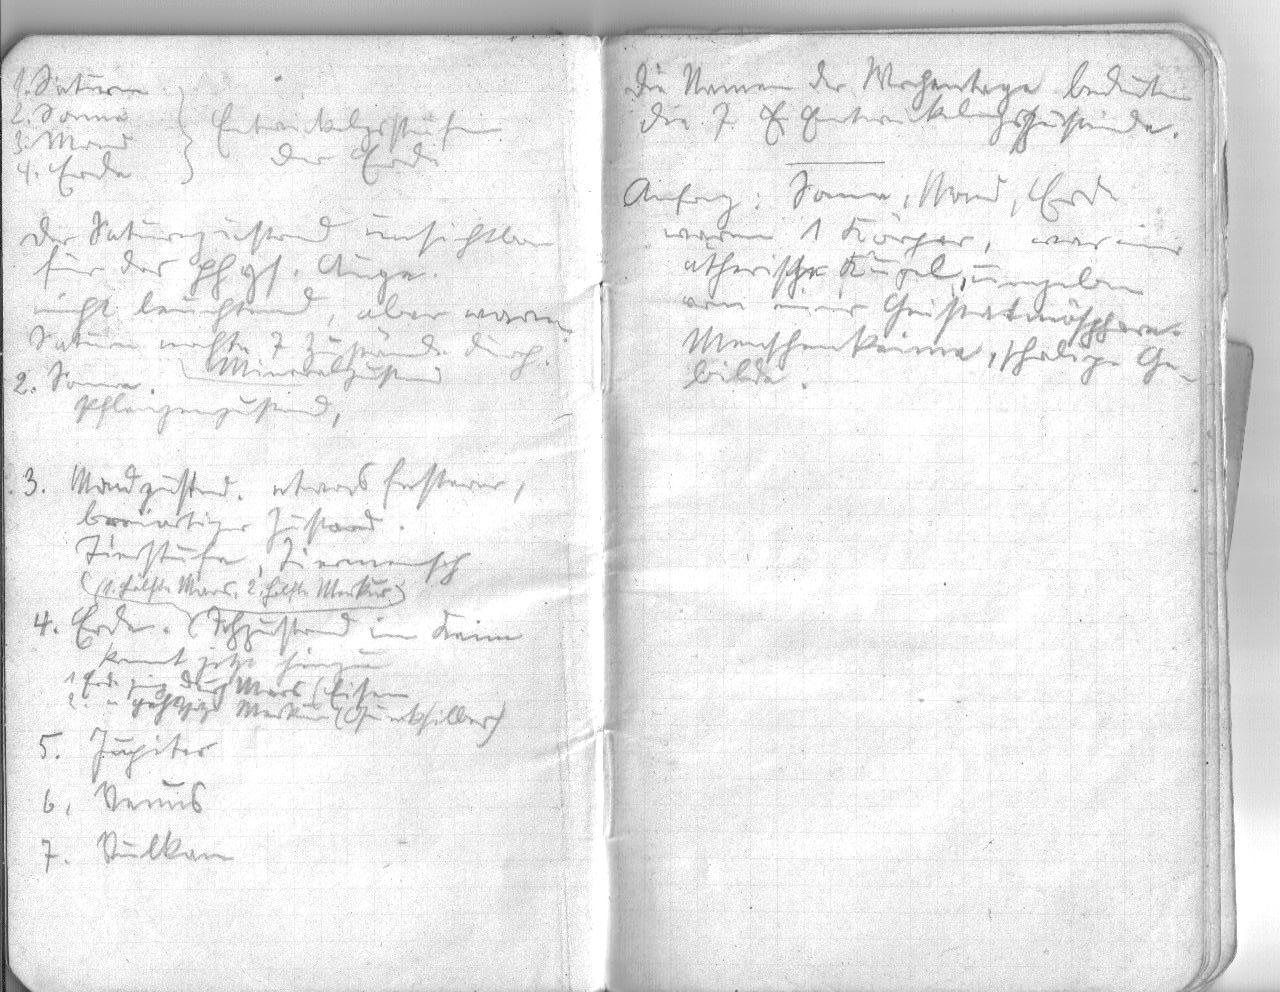 1. Saturn
2. Sonne
3. Mond
4. Erde
Entwicklgsstufen
der Erde
Der Saturnzustand unsichtbar
für das phys. Auge.
nicht leuchtend, aber warm.
Saturn machte 7 Zustände durch.
Mineralzustand
2. Sonne.
Pflanzenzustand,
3. Mondzustand. etwas festerer,
breiartiger Zustand.
Tierstufe, Tiermensch
(1. Hälfte Mars, 2. Hälfte Merkur)
4. Erde. (Ichzustand im Keim
kommt jetzt hinzu
1 Erde ging durch Mars (Eisen
2. " Merkur (Quecksilber)
5. Jupiter
6. Venus
7. Vulkan
Die Namen der Wochentage bedeuten
die 7 Entwicklungszustände.
Anfang: Sonne, Mond, Erde
waren 1 Körper, war eine
ätherische Kugel, umgeben
von einer Geistatmosphäre.
Menschenkeime, schalige Ge-
bilde.